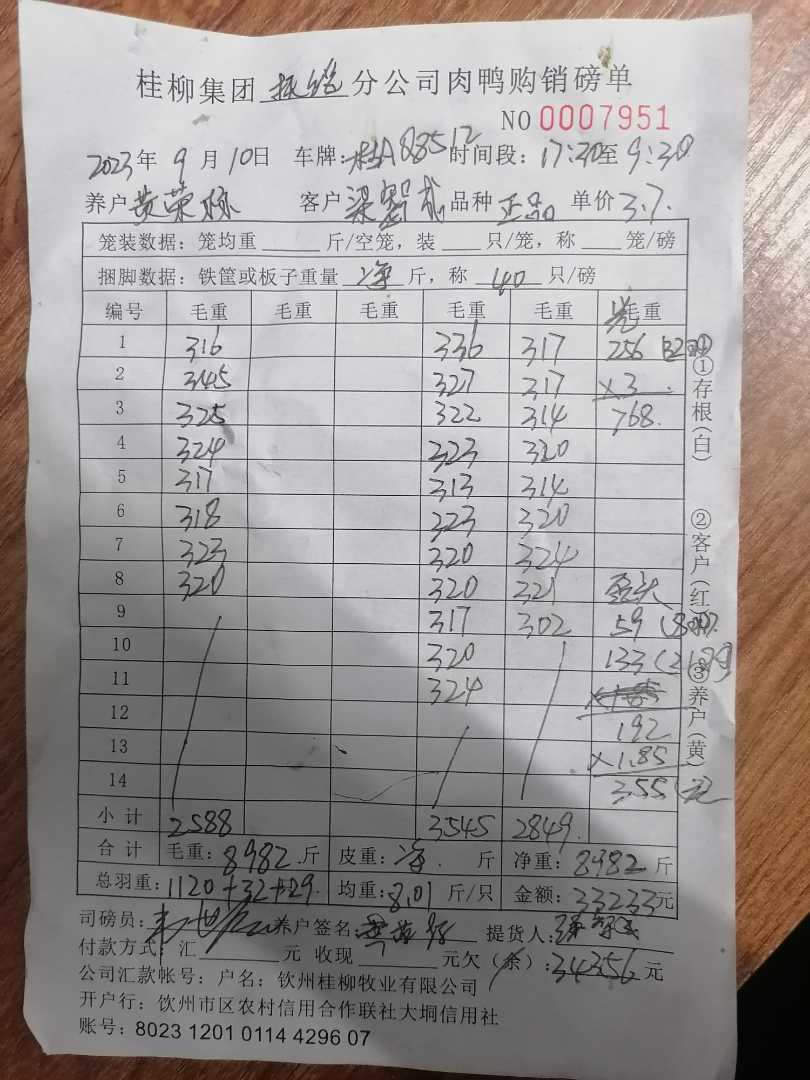 桂柳集团 分公司肉鸭购销磅单
NO 0007951
2023年 9月 10日 车牌:桂A88512 时间段: 17:30至9:30
养户 黄荣 客户 梁 品种 正品 单价 3.7
笼装数据: 笼均重 斤/空笼, 装 只/笼, 称 笼/磅
捆脚数据: 铁筐或板子重量 净 斤, 称 40 只/磅
编号 毛重 毛重 毛重 毛重 毛重 毛重
1 316 336 317 256
2 345 327 317 ×3
3 325 322 314 768
4 324 323 320
5 317 313 314
6 318 323 320
7 323 320 324
8 320 320 321
9 317 302 59
10 320 133
11 324
12 192
13 ×1.85
14 3.55 元
小计 2588 3545 2849
合计 毛重: 8982 斤 皮重: 净 斤 净重: 8982 斤
总羽重: 1120+32+29 均重: 8.01 斤/只 金额: 33233元
司磅员: 养户签名 提货人:
付款方式: 汇 元 收现 元欠(余): 34356 元
公司汇款帐号: 户名: 钦州桂柳牧业有限公司
开户行: 钦州市区农村信用合作联社大垌信用社
账号: 8023 1201 0114 4296 07
①存根(白) ②客户(红) ③养户(黄)